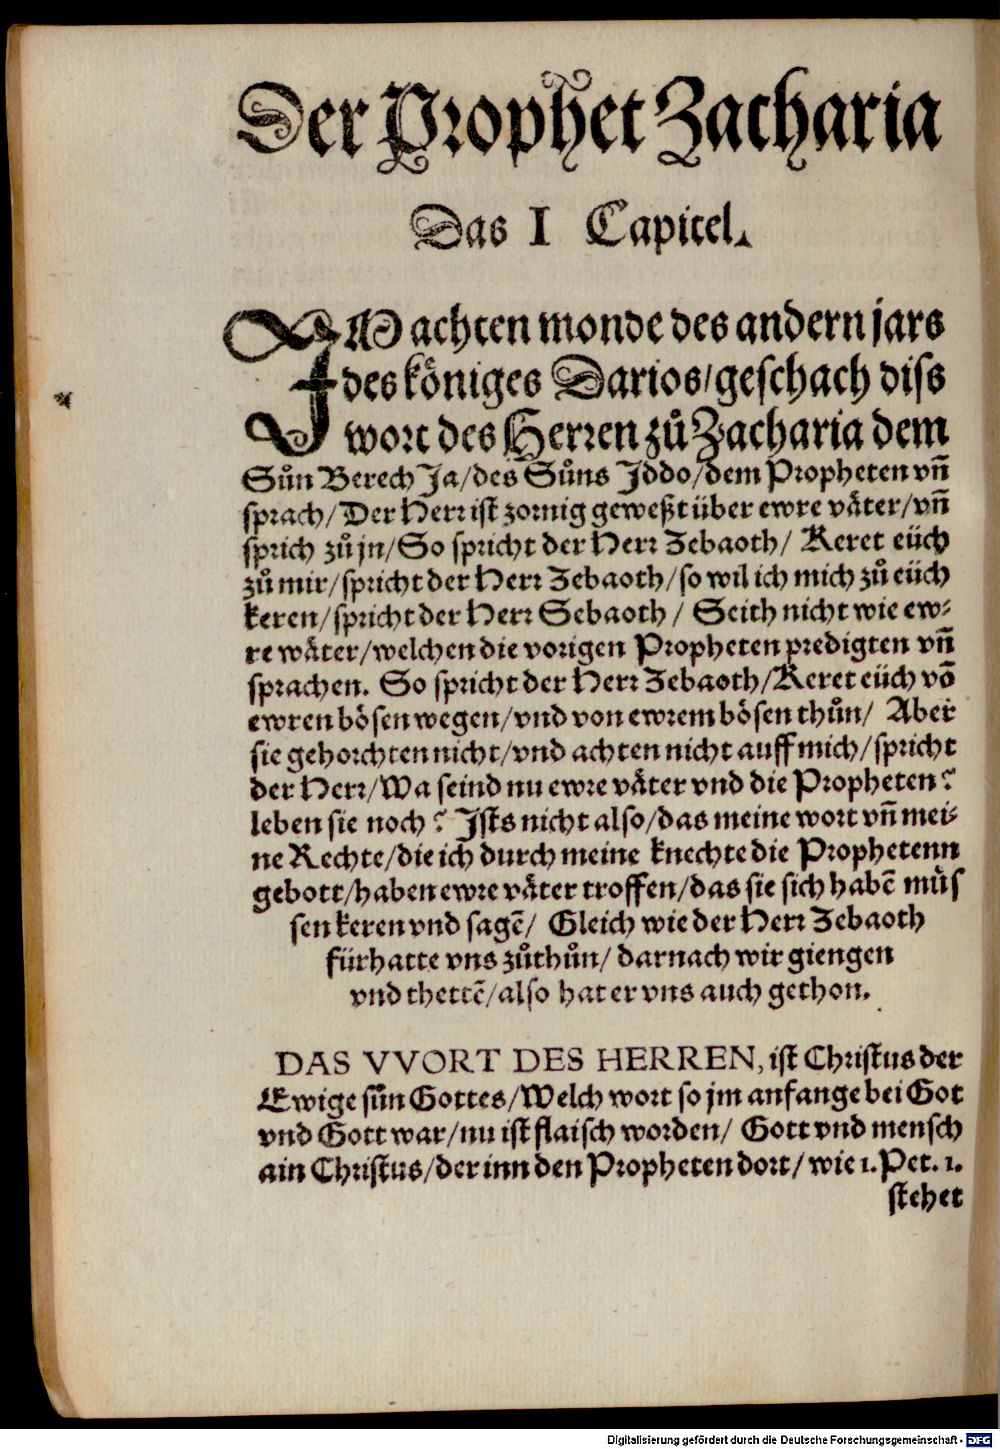 Der Prophet Zacharia
Das I Capitel.
IM achten monde des andern jars
des königes Darios/geschach diss
wort des Herren zů Zacharia dem
Sůn Berech Ja/des Sůns Iddo/dem Propheten vñ
sprach/Der Herr ist zornig geweßt über ewre väter/vñ
sprich zů jn/So spricht der Herr Zebaoth/ Keret eüch
zů mir/spricht der Herr Zebaoth/so wil ich mich zů eüch
keren/spricht der Herr Sebaoth/ Seith nicht wie ew⸗
re wäter/welchen die vorigen Propheten predigten vñ
sprachen. So spricht der Herr Zebaoth/Keret eüch võ
ewren bösen wegen/vnd von ewrem bösen thůn/ Aber
sie gehorchten nicht/vnd achten nicht auff mich/spricht
der Herr/Wa seind nu ewre väter vnd die Propheten?
leben sie noch? Ists nicht also/das meine wort vñ mei⸗
ne Rechte/die ich durch meine knechte die Prophetenn
gebott/haben ewre väter troffen/das sie sich habẽ müs
sen keren vnd sagẽ/ Gleich wie der Herr Zebaoth
fürhatte vns zůthůn/ darnach wir giengen
vnd thettẽ/also hat er vns auch gethon.
DAS VVORT DES HERREN, ist Christus der
Ewige sůn Gottes/Welch wort so jm anfange bei Got
vnd Gott war/nu ist flaisch worden/ Gott vnd mensch
ain Christus/der inn den Propheten dort/ wie 1. Pet. 1.
stehet
Digitalisierung gefördert durch die Deutsche Forschungsgemeinschaft - DFG